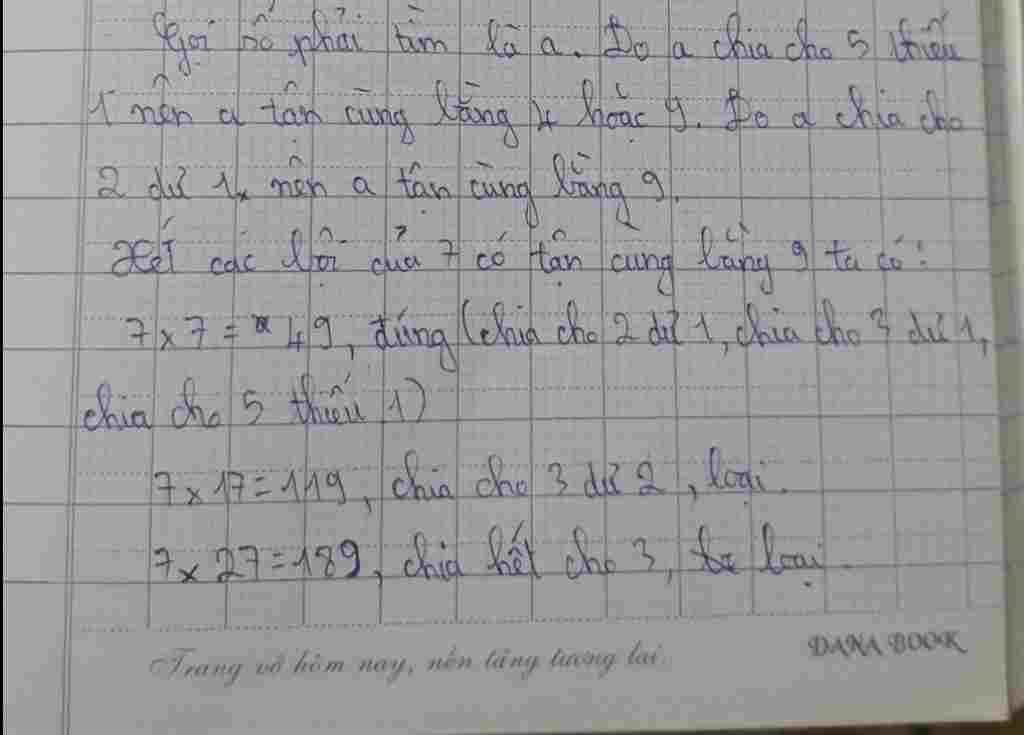 Gọi số phải tìm là a. Do a chia cho 5 thiếu
1 nên a tận cùng bằng 4 hoặc 9. Do a chia cho
2 dư 1 nên a tận cùng bằng 9.
Xét các bội của 7 có tận cùng bằng 9 ta có:
7 x 7 = 49, đúng (chia cho 2 dư 1, chia cho 3 dư 1,
chia cho 5 thiếu 1)
7 x 17 = 119, chia cho 3 dư 2, loại.
7 x 27 = 189, chia hết cho 3, loại.
Trang vở hôm nay, nền tảng tương lai.
DANA BOOK